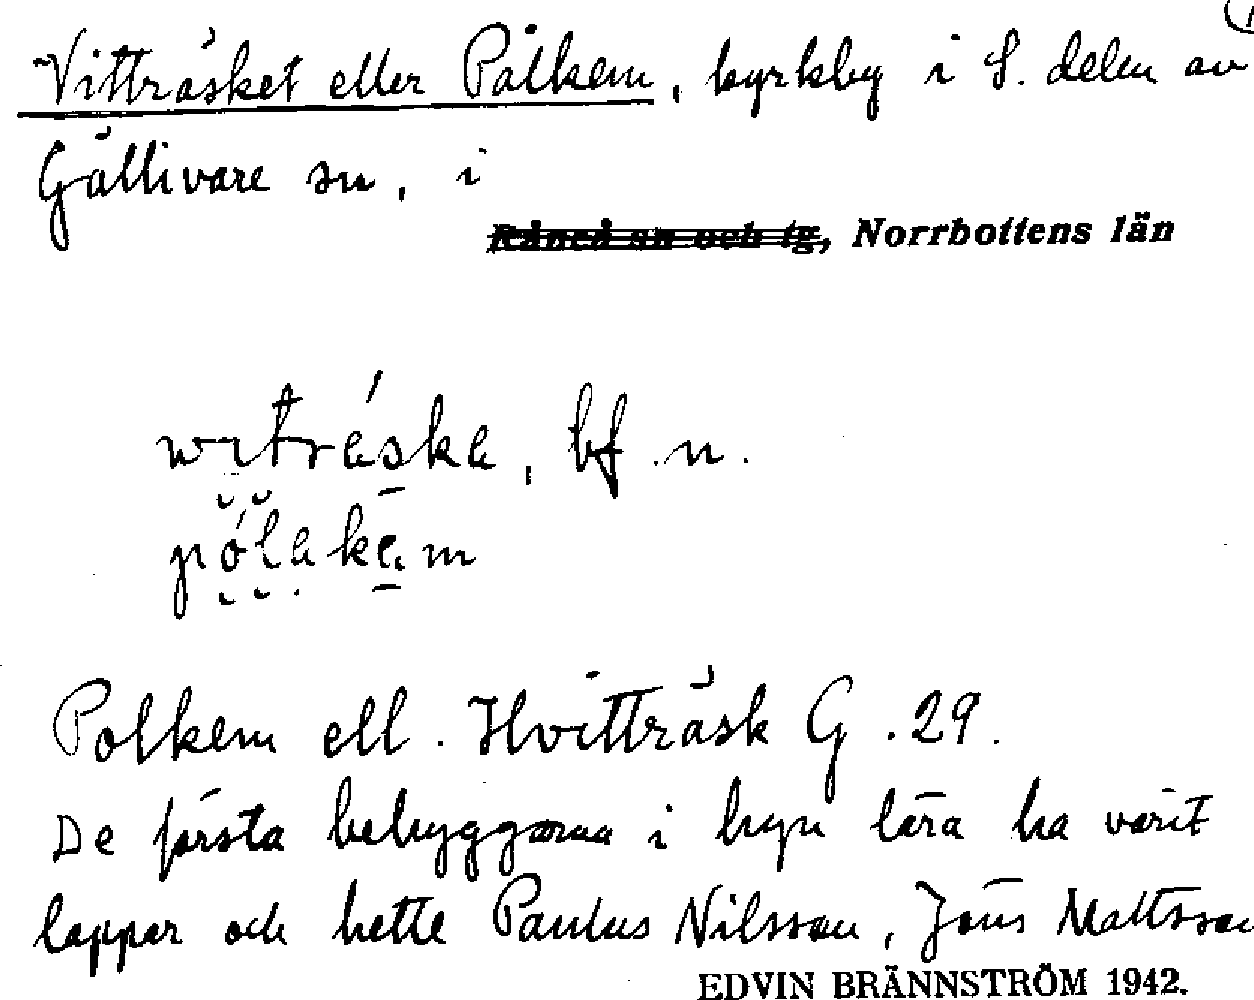 Vitträsket eller Pålkem, kyrkby i S. delen av
Gällivare sn, i
Råneå sn och tg, Norrbottens län
witräska, bf. n.
pólakam
Polkem ell. Hvitträsk G. 29.
De första bebyggarna i byn lära ha varit
lappar och hette Paulus Nilsson, Jöns Mattsson
EDVIN BRÄNNSTRÖM 1942.